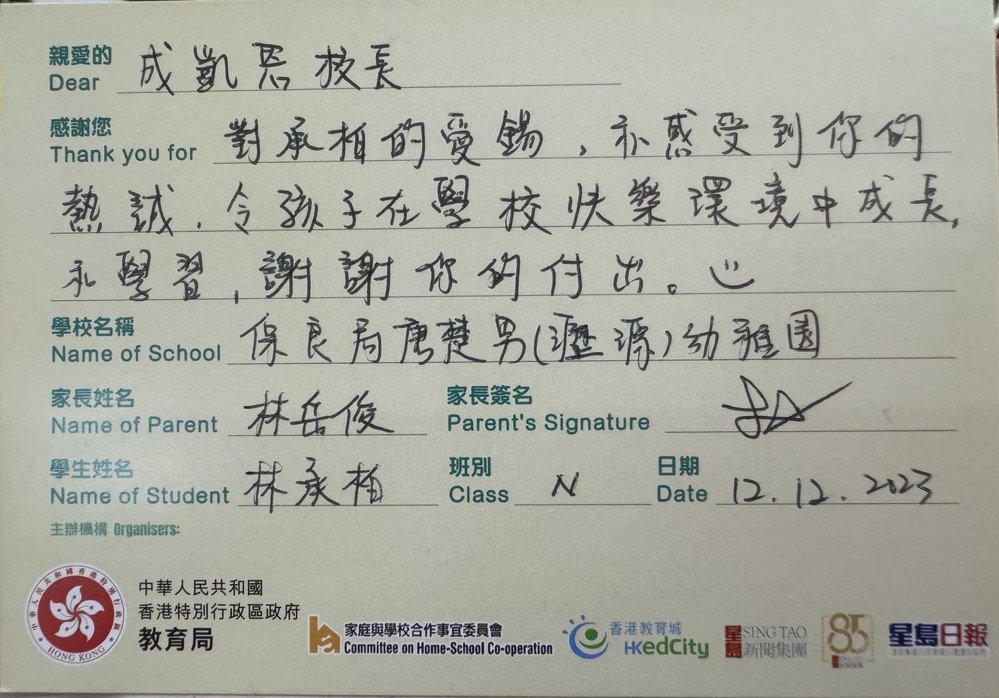 親愛的
Dear 成凱恩校長
感謝您
Thank you for 對承柏的愛錫,亦感受到你的
熱誠,令孩子在學校快樂環境中成長,
亦學習,謝謝你的付出。
學校名稱
Name of School 保良局唐楚男(瀝源)幼稚園
家長姓名 家長簽名
Name of Parent 林岳俊 Parent's Signature
學生姓名 班別 日期
Name of Student 林承柏 Class N Date 12.12.2023
主辦機構 Organisers:
中華人民共和國香港特別行政區 HONG KONG
中華人民共和國
香港特別行政區政府
教育局
家庭與學校合作事宜委員會
Committee on Home-School Co-operation
香港教育城
HKedCity
星島 SING TAO
新聞集團
85
星島日報
SING TAO DAILY